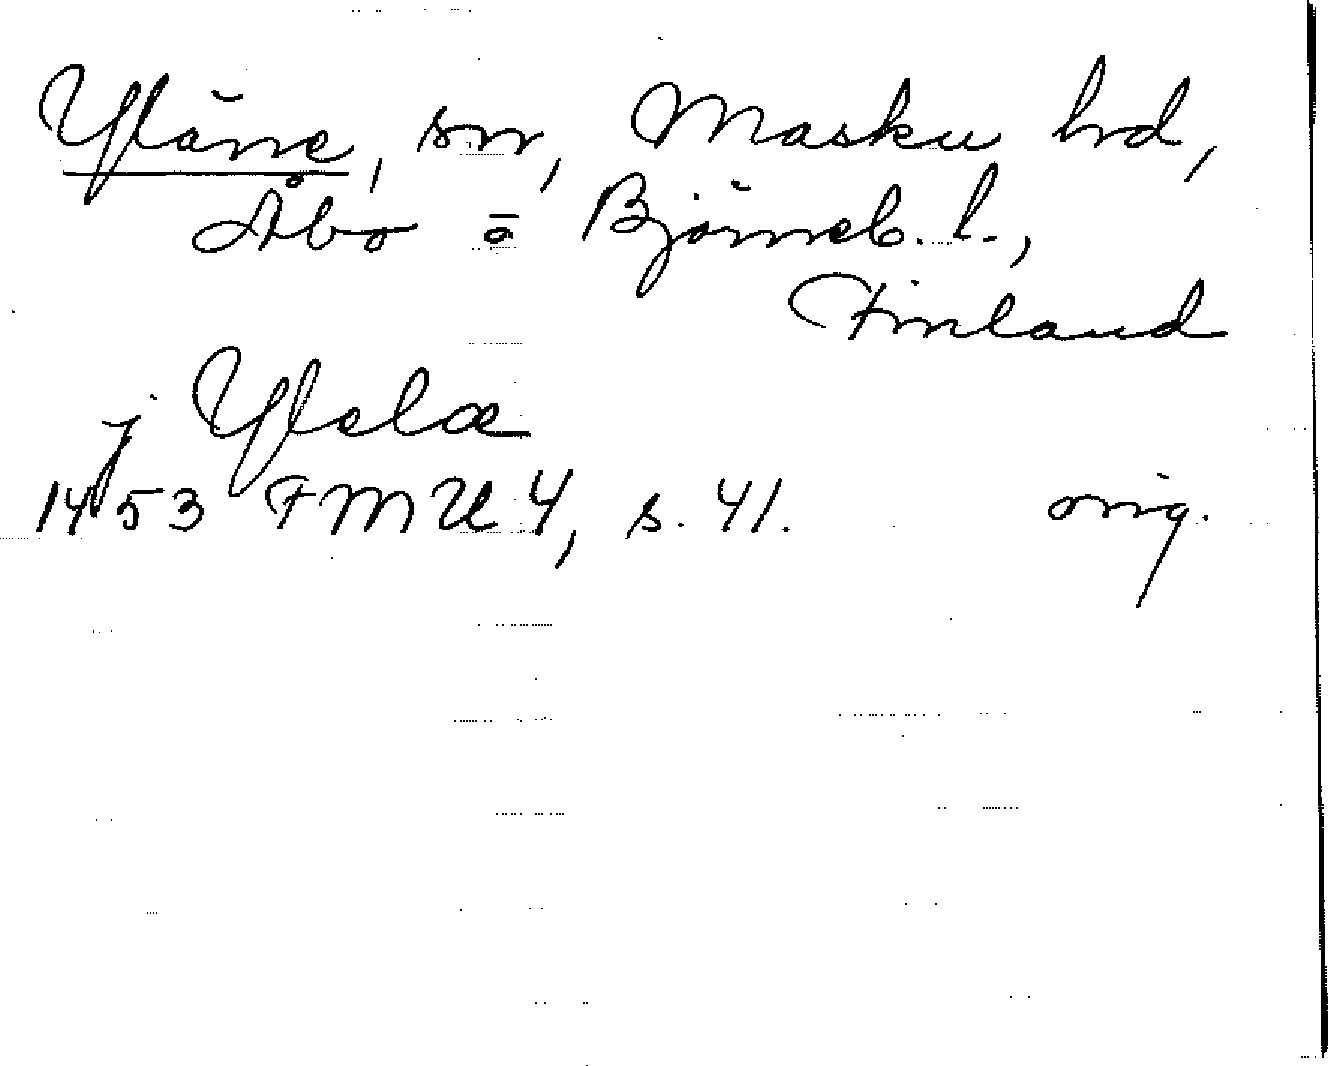 Yläne, sn, Masku hd,
Åbo o Björneb. l.,
Finland
j Ylelæ
1453 FMU 4, s. 41. orig.